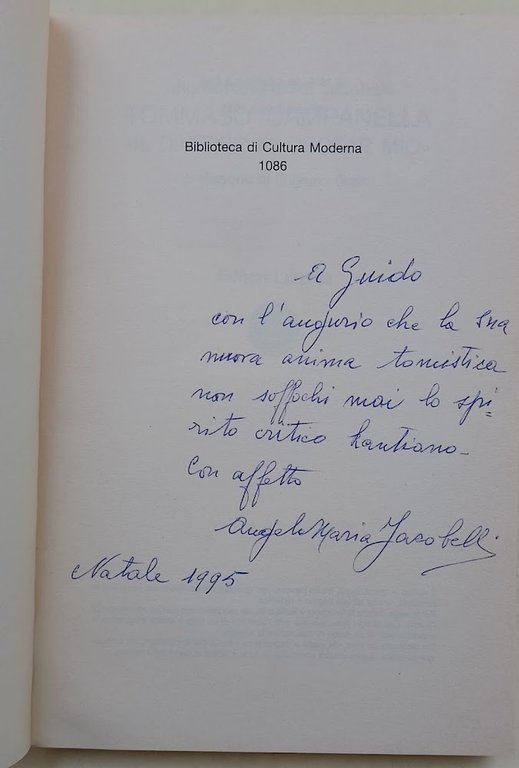 Biblioteca di Cultura Moderna
1086
A Guido
con l'augurio che la sua
nuova anima tomistica
non soffochi mai lo spi=
rito critico kantiano-
Con affetto
Angelo Maria Jacobelli
Natale 1995
TOMMASO CAMPANELLA